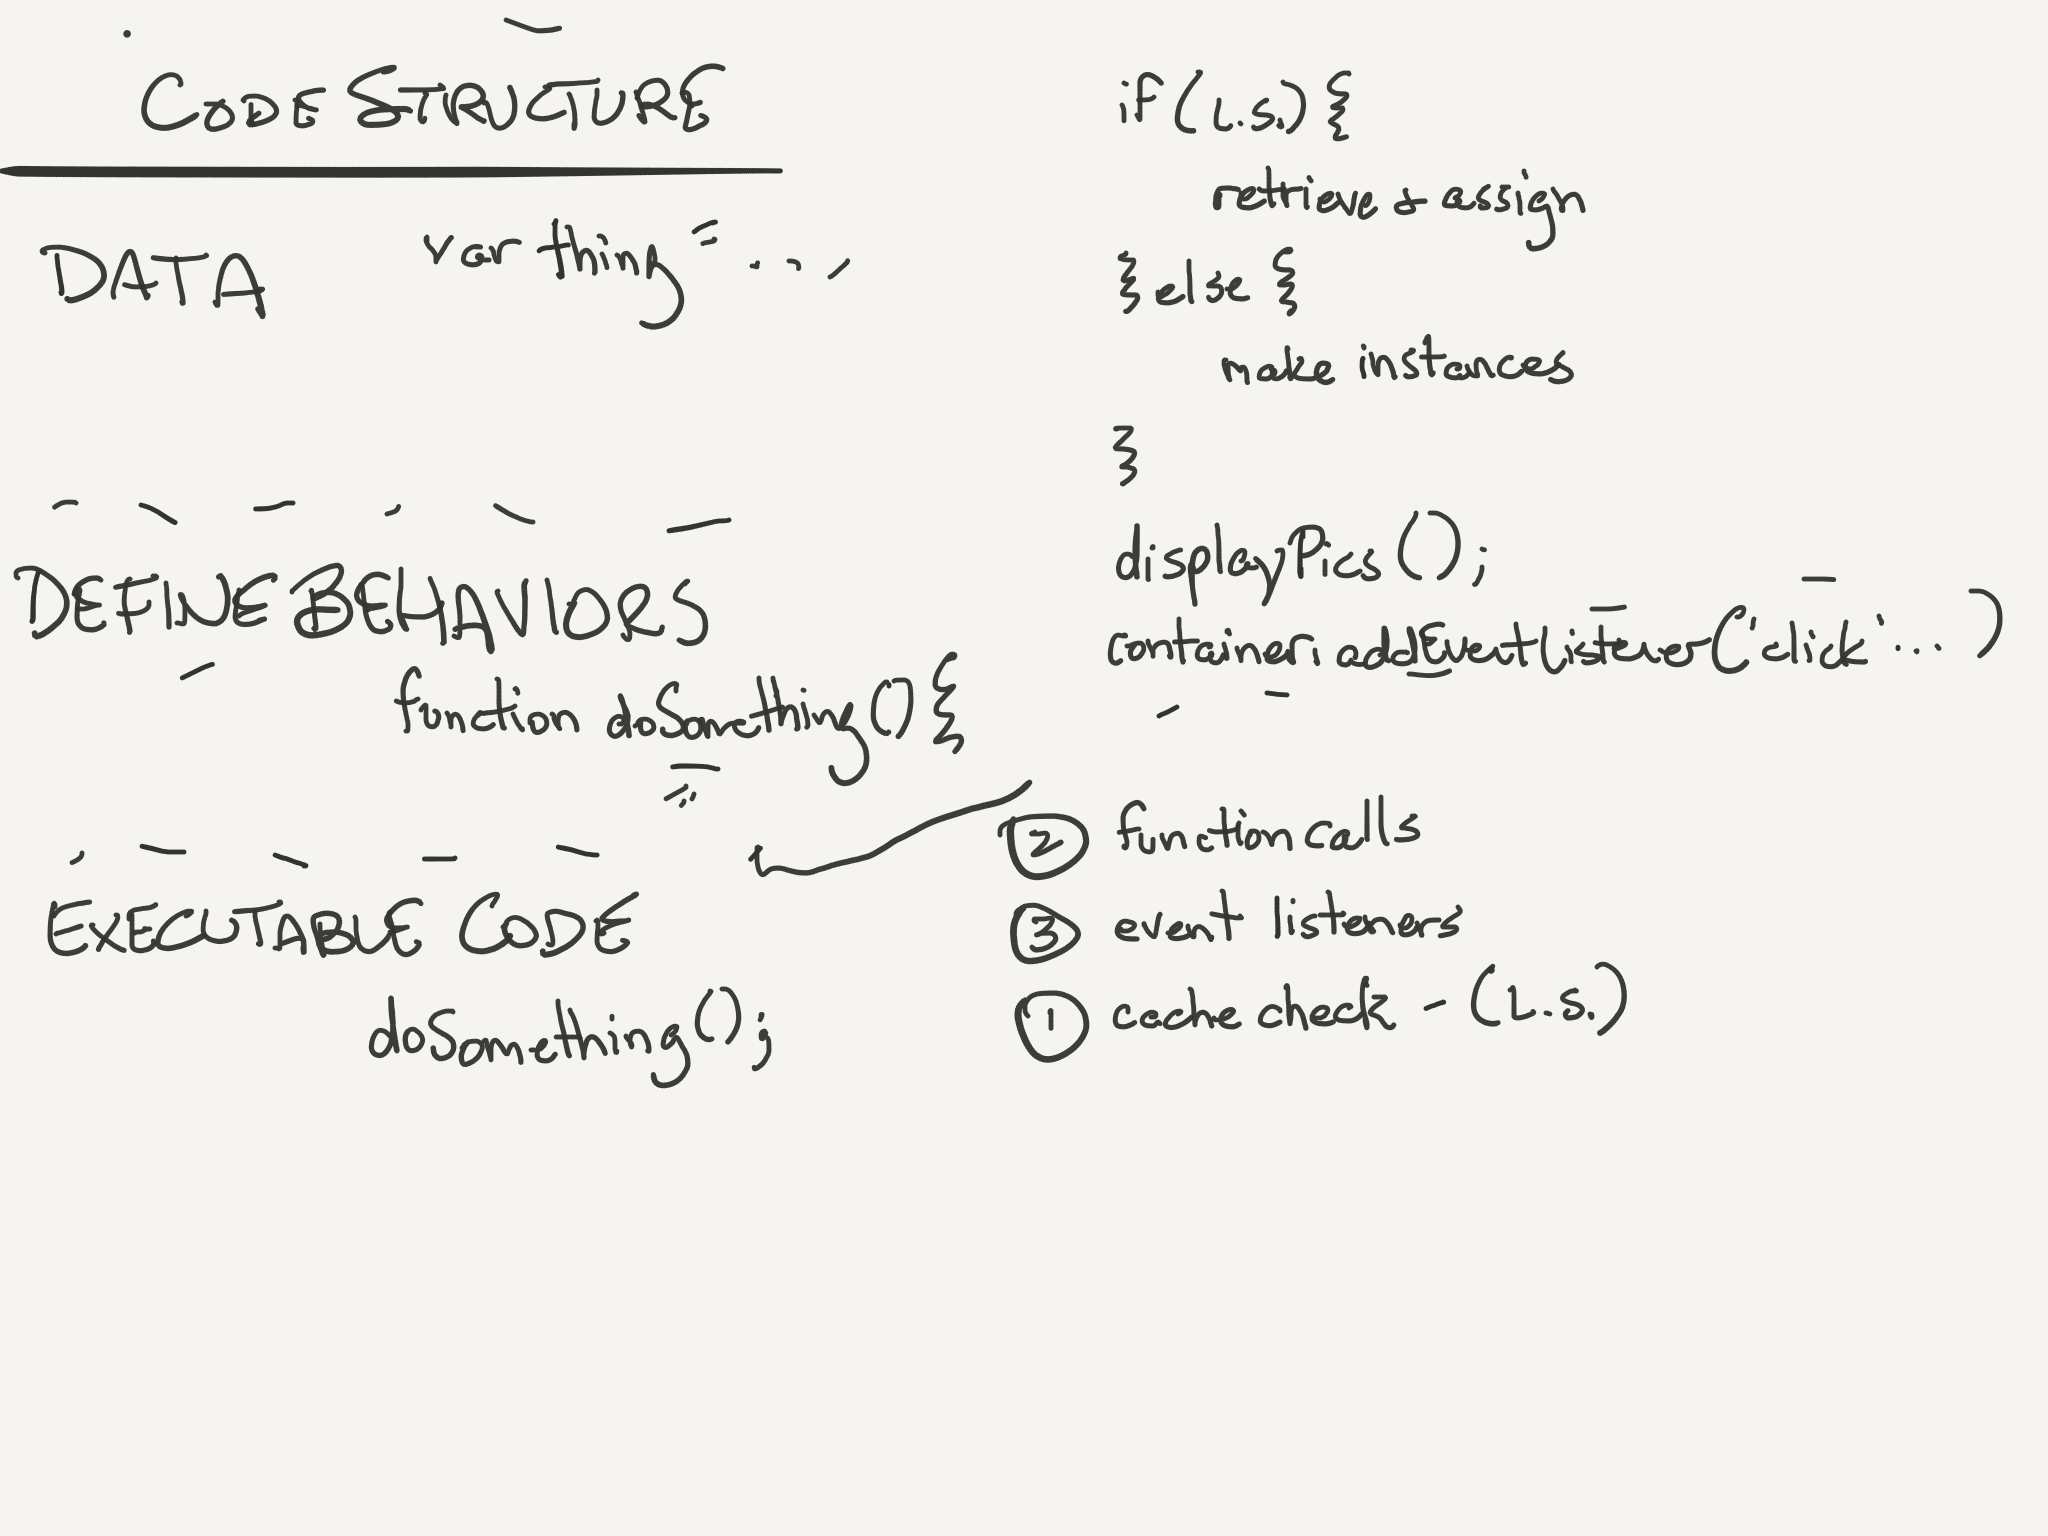 CODE STRUCTURE
DATA
var thing = ...
DEFINE BEHAVIORS
function doSomething() {
EXECUTABLE CODE
doSomething();
if (L.S.) {
retrieve & assign
} else {
make instances
}
displayPics();
container.addEventListener('click'... )
② function calls
③ event listeners
① cache check - (L.S.)